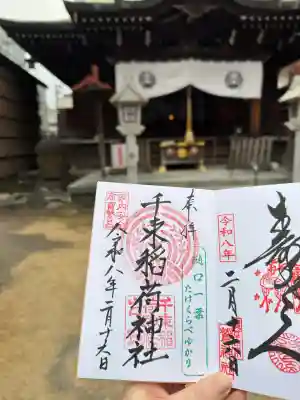 寿老人
令和八年
二月十六日
奉拝
樋口一葉
たけくらべゆかり
千束稲荷神社
令和八年二月十六日